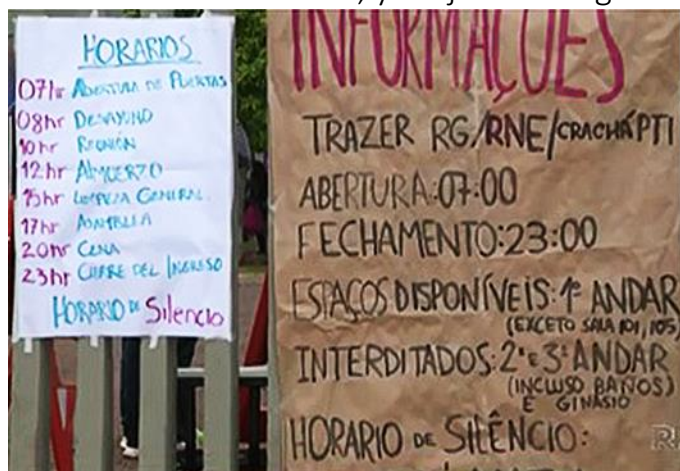 HORARIOS
07hr ABERTURA DE PUERTAS
08hr DESAYUNO
10hr REUNIÓN
12hr ALMUERZO
15hr LIMPEZA GENERAL
17hr ASAMBLEA
20hr CENA
23hr CIERRE DEL INGRESO
HORARIO DE Silencio
INFORMAÇÕES
TRAZER RG/RNE/CRACHÁ PTI
ABERTURA:07:00
FECHAMENTO:23:00
ESPAÇOS DISPONÍVEIS: 1º ANDAR
(EXCETO SALA 101, 105)
INTERDITADOS: 2º E 3º ANDAR
(INCLUSO BAÑOS)
E GINÁSIO
HORARIO DE SILÊNCIO: